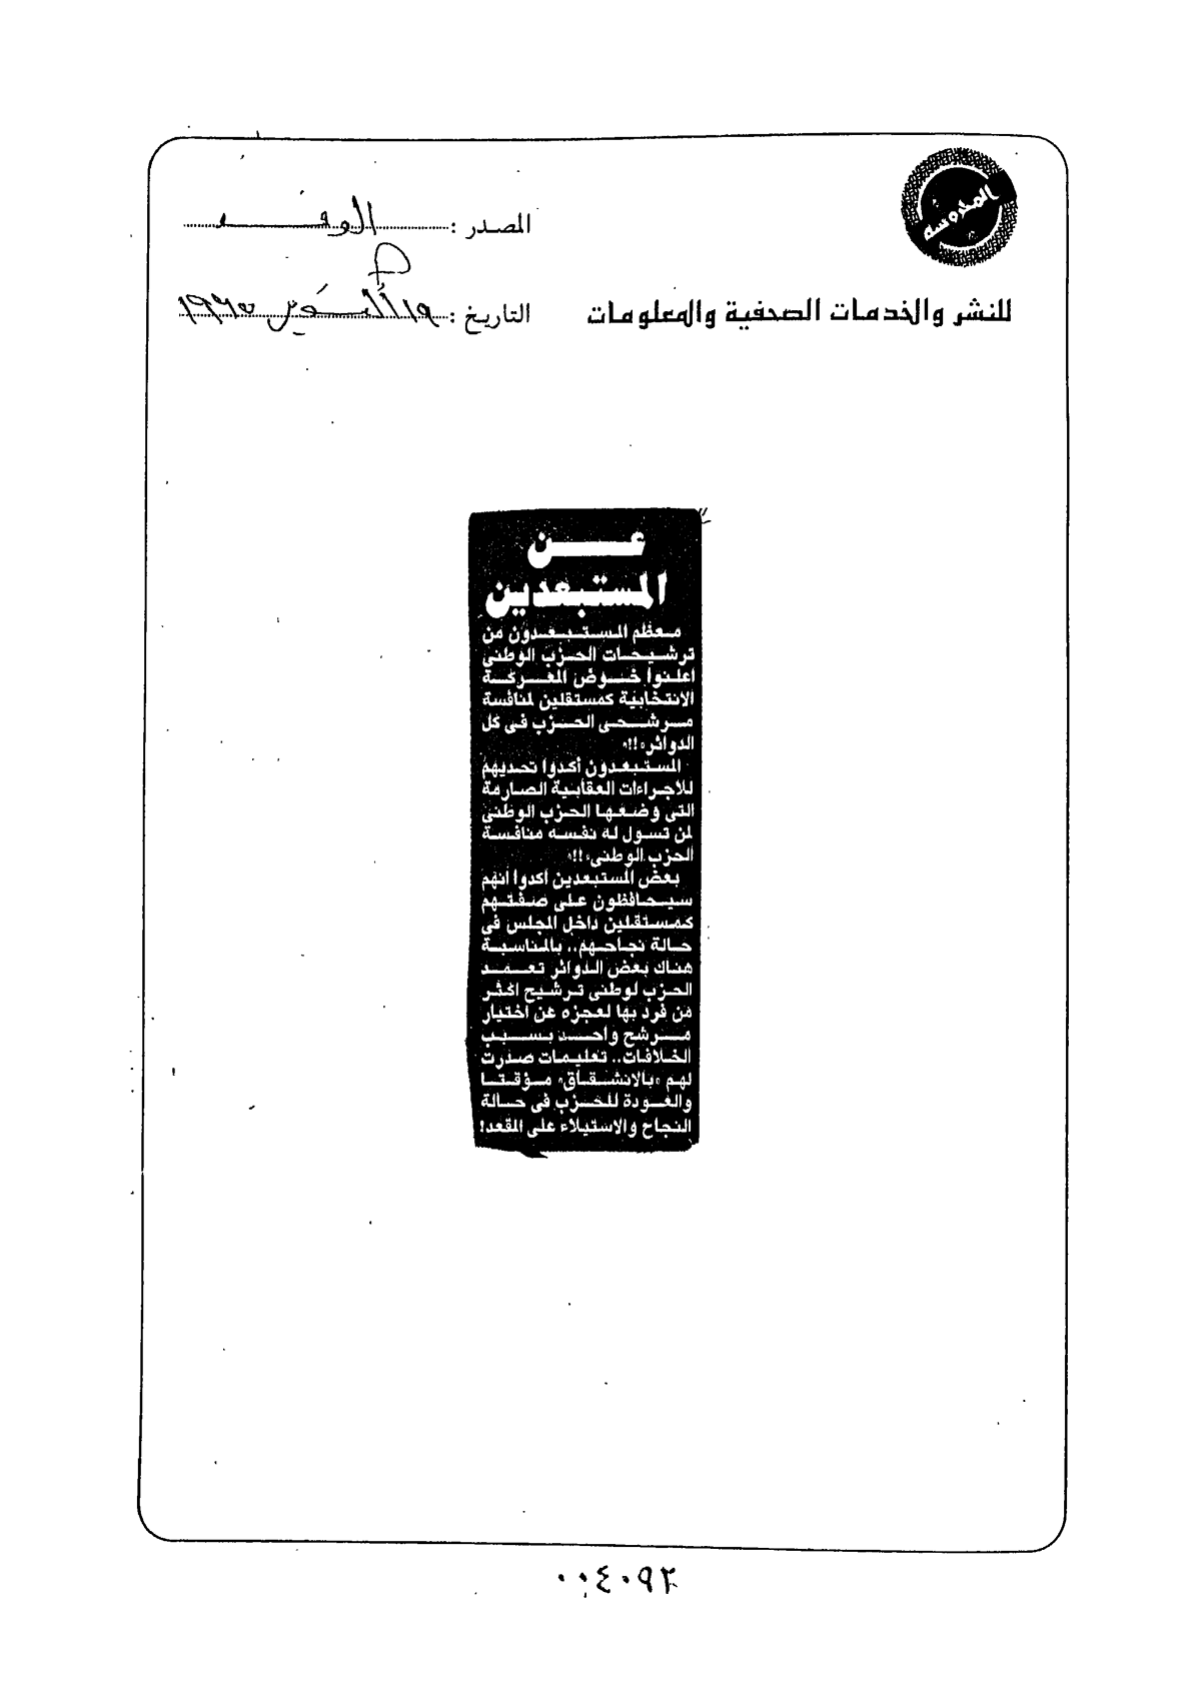 المحروسة
المصدر : الوفد
للنشر والخدمات الصحفية والمعلومات
التاريخ : ١٩ أكتوبر
عـــن
المستبعدين
معظم المستبعدون من
ترشيحات الحزب الوطنى
اعلنوا خوض المعركة
الانتخابية كمستقلين لمنافسة
مرشحى الحزب فى كل
الدوائر«!!»
المستبعدون أكدوا تحديهم
للاجراءات العقابية الصارمة
التى وضعها الحزب الوطنى
لمن تسول له نفسه منافسة
الحزب الوطنى«!!»
بعض المستبعدين أكدوا أنهم
سيحافظون على صفتهم
كمستقلين داخل المجلس فى
حالة نجاحهم.. بالمناسبة
هناك بعض الدوائر تعمد
الحزب لوطنى ترشيح اكثر
من فرد بها لعجزه عن اختيار
مرشح واحد بسبب
الخلافات.. تعليمات صدرت
لهم «بالانشقاق» مؤقتا
والعودة للحزب فى حالة
النجاح والاستيلاء على المقعد!
٠٠٤٠٩٢